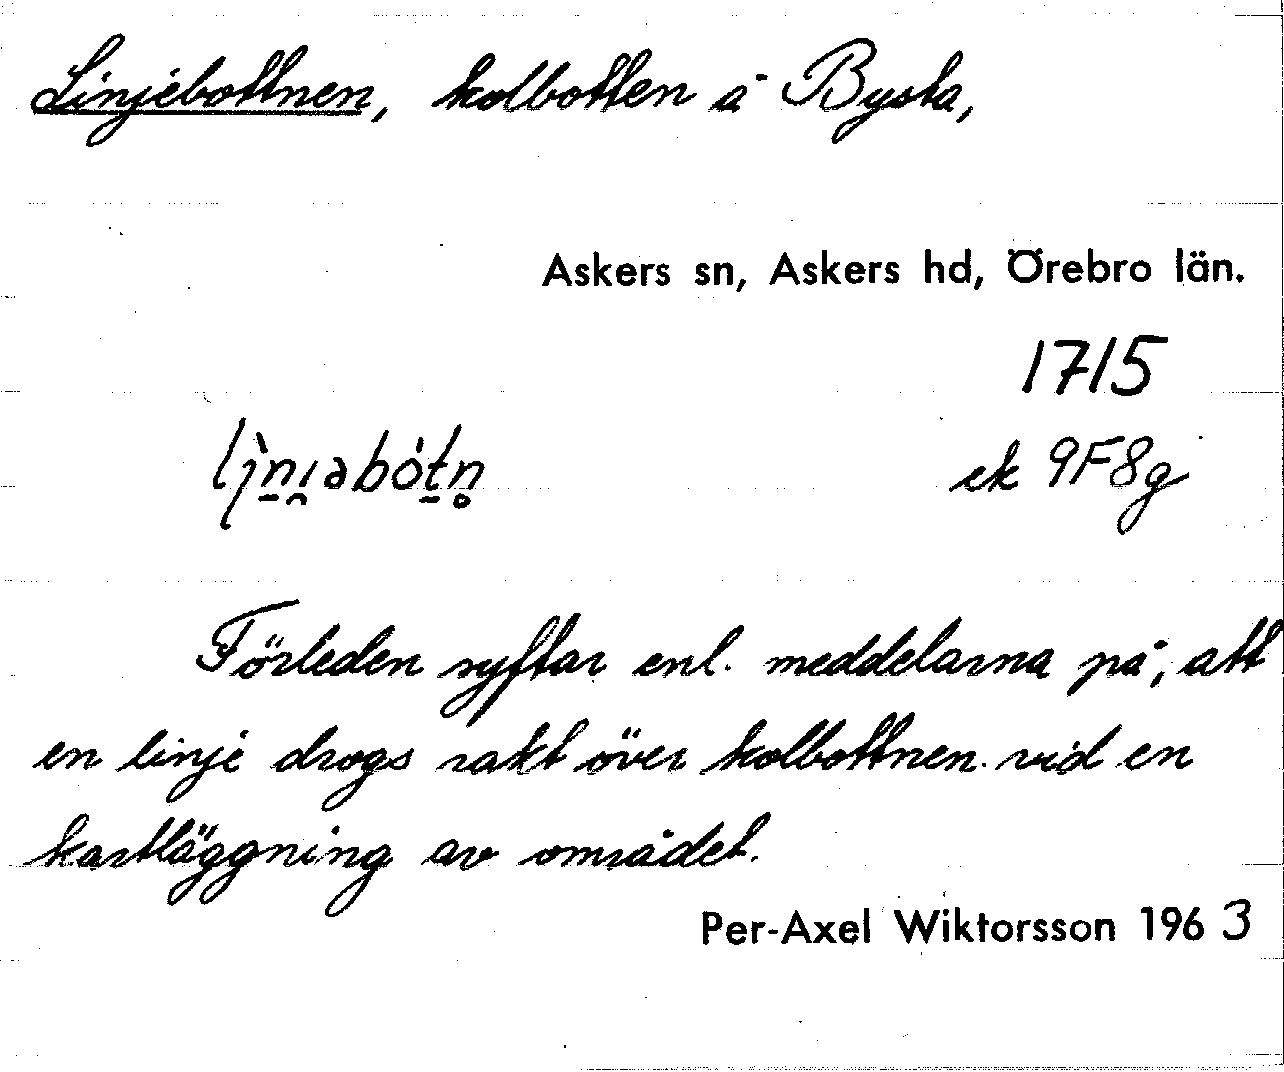 Linjebottnen, kolbotten å Bysta,
Askers sn, Askers hd, Örebro län.
1715
ek 9F8g
Förleden syftar enl. meddelarna på, att
en linje drogs rakt över kolbottnen vid en
kartläggning av området.
Per-Axel Wiktorsson 1963